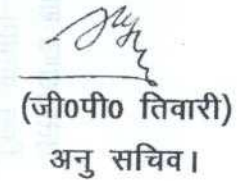 (जी0पी0 तिवारी)
अनु सचिव।